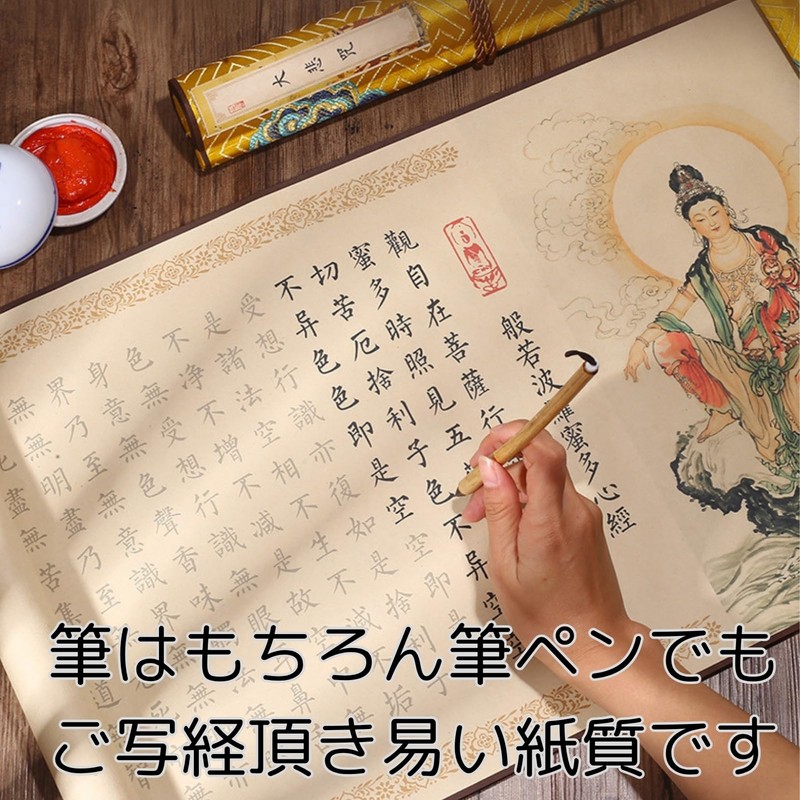 大悲咒
般若波羅蜜多心經
觀自在菩薩行
蜜多時照見五
切苦厄捨利子色不异空
不异色色即是空空即是
受想行識亦復如是捨利子
是諸法空相不生不滅不垢
不净不增不减是故空中
色無受想行識無眼耳鼻
身意無色聲香味
界乃至無意識界無
無無明盡乃至
盡無苦集
筆はもちろん筆ペンでも
ご写経頂き易い紙質です